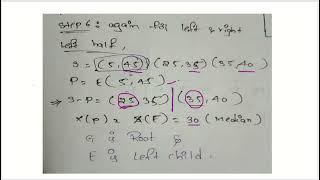 Step 6 : again for left & right
left half,
S = (5,45) (25,35) (35,40)
P = E(5,45)
⇒ S-P = (25 35) | (35,40)
X(P) x X(E) = 30 (median)
G is Root &
E is left child.